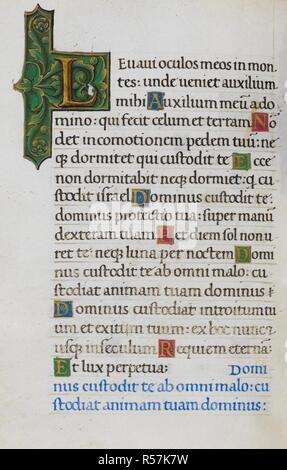 Leuavi oculos meos in mon
tes: unde veniet auxilium
mihi Auxilium meū a do
mino: qui fecit celum et terram No
det in comotionem pedem tuū: ne
qȝ dormitet qui custodit te Ecce
non dormitabit neqȝ dormiet: q cu
stodit isrl Dominus custodit te:
dominus protectio tua: super manū
dexteram tuam Per diem sol non u
ret te: neqȝ luna per noctem Domi
nus custodit te ab omni malo: cu
stodiat animam tuam dominus
Dominus custodiat introitum tu
um et exitum tuum: ex hoc nunc et
usqȝ in seculum Requiem eternā:
Et lux perpetua: Domi
nus custodit te ab omni malo: cu
stodiat animam tuam dominus:
alamy
Image ID: R57K7W
www.alamy.com